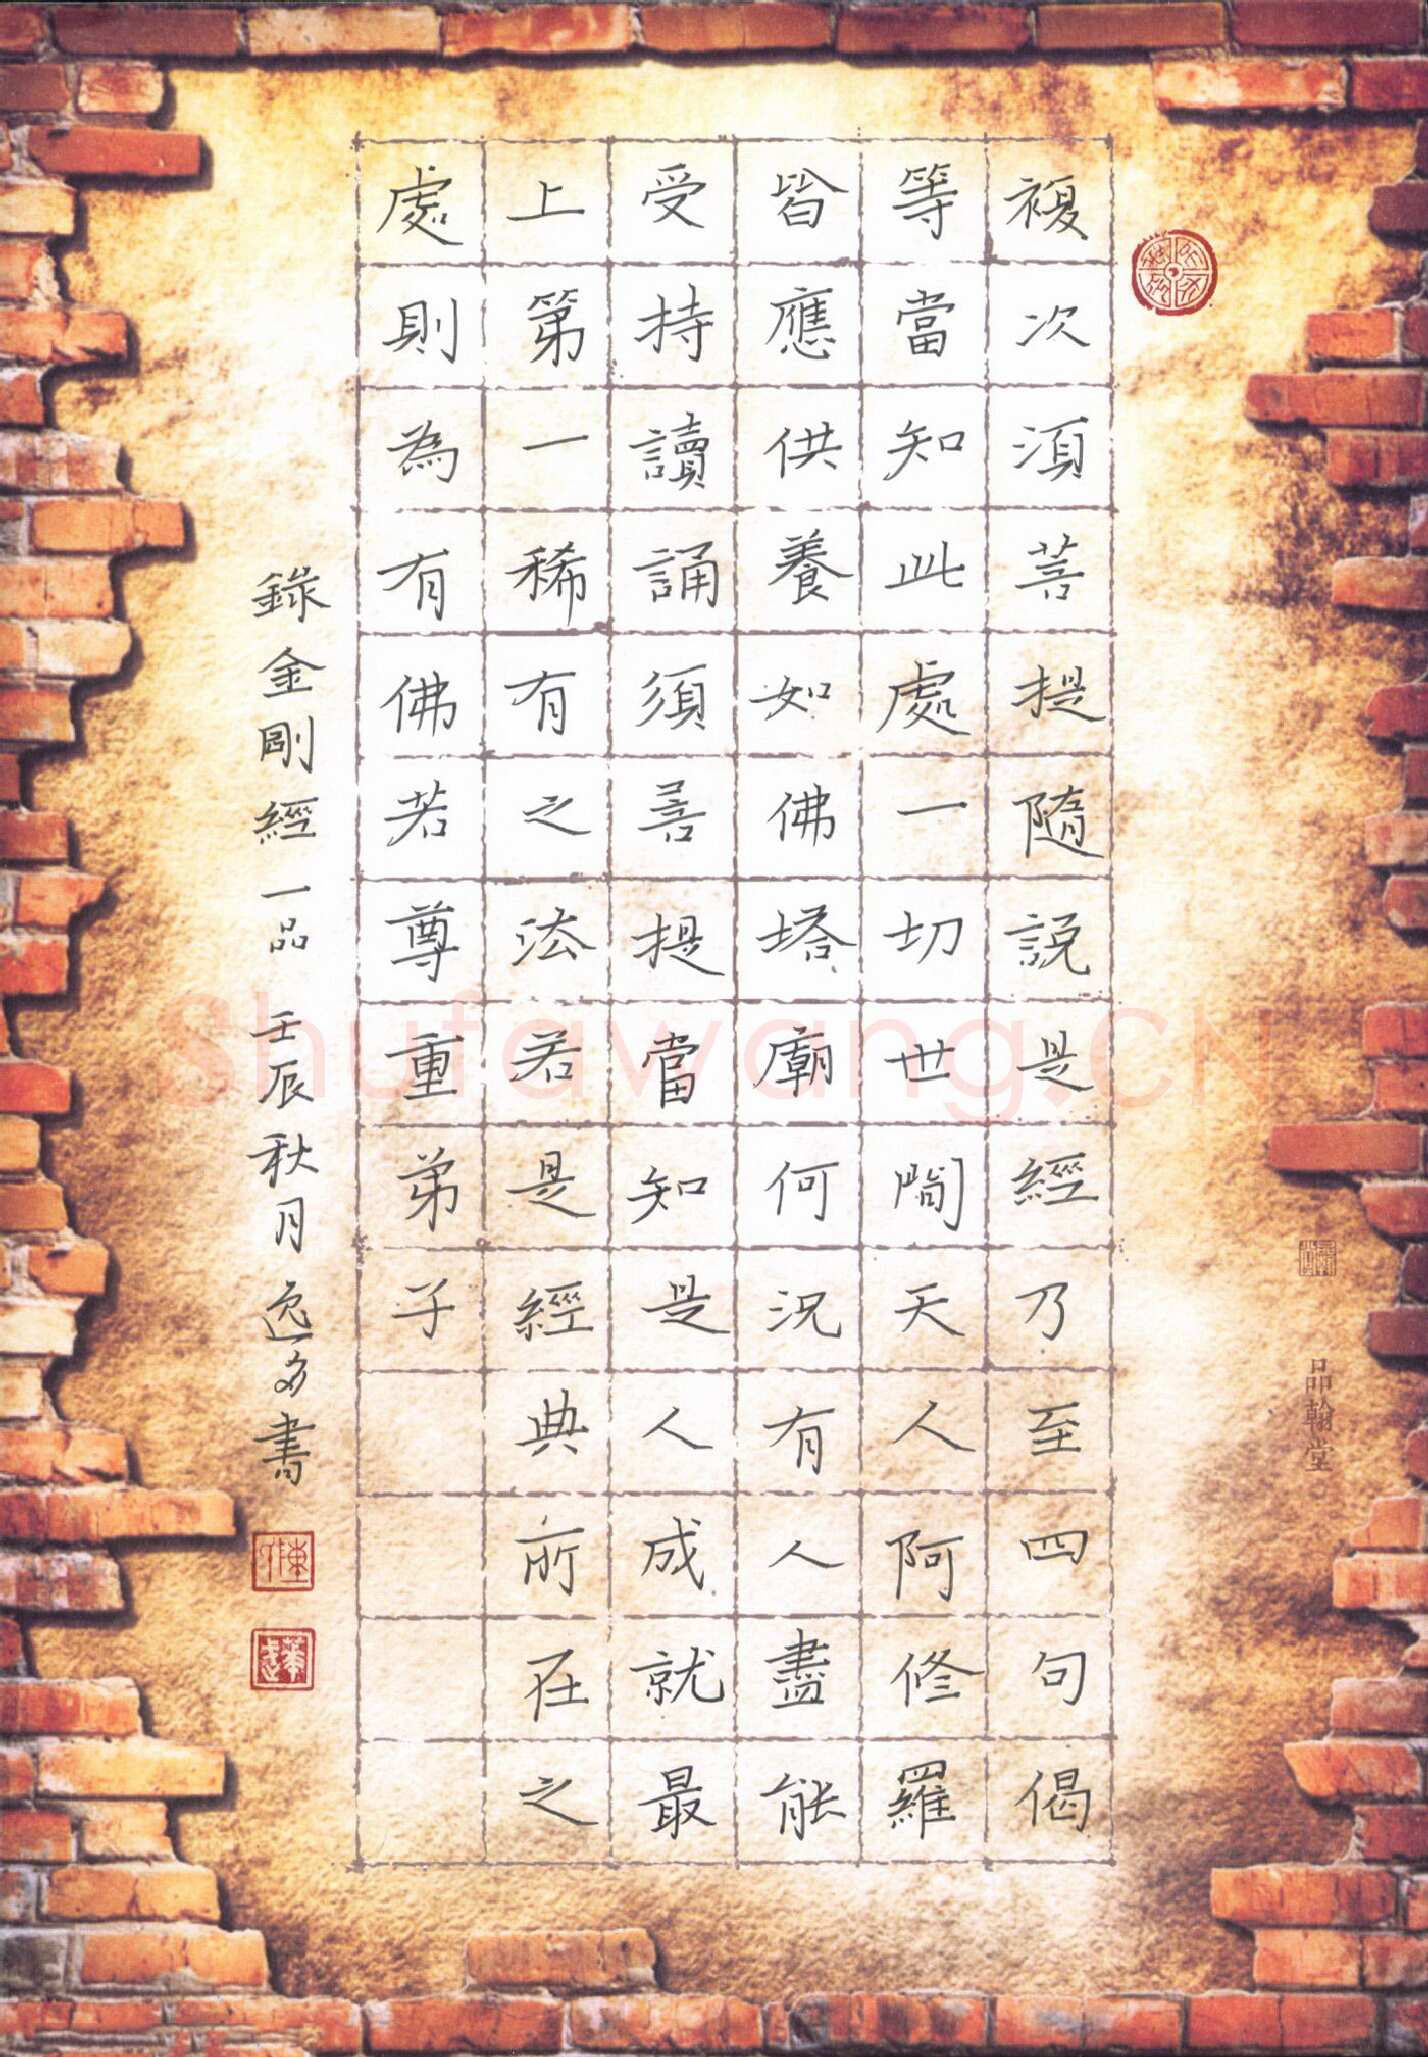 複次湏菩提隨說是經乃至四句偈
等當知此處一切世間天人阿修羅
皆應供養如佛塔廟何況有人盡能
受持讀誦須菩提當知是人成就最
上第一稀有之法若是經典所在之
處則為有佛若尊重弟子
錄金剛經一品 壬辰秋月逸多書
品翰堂
Shufawang.CN